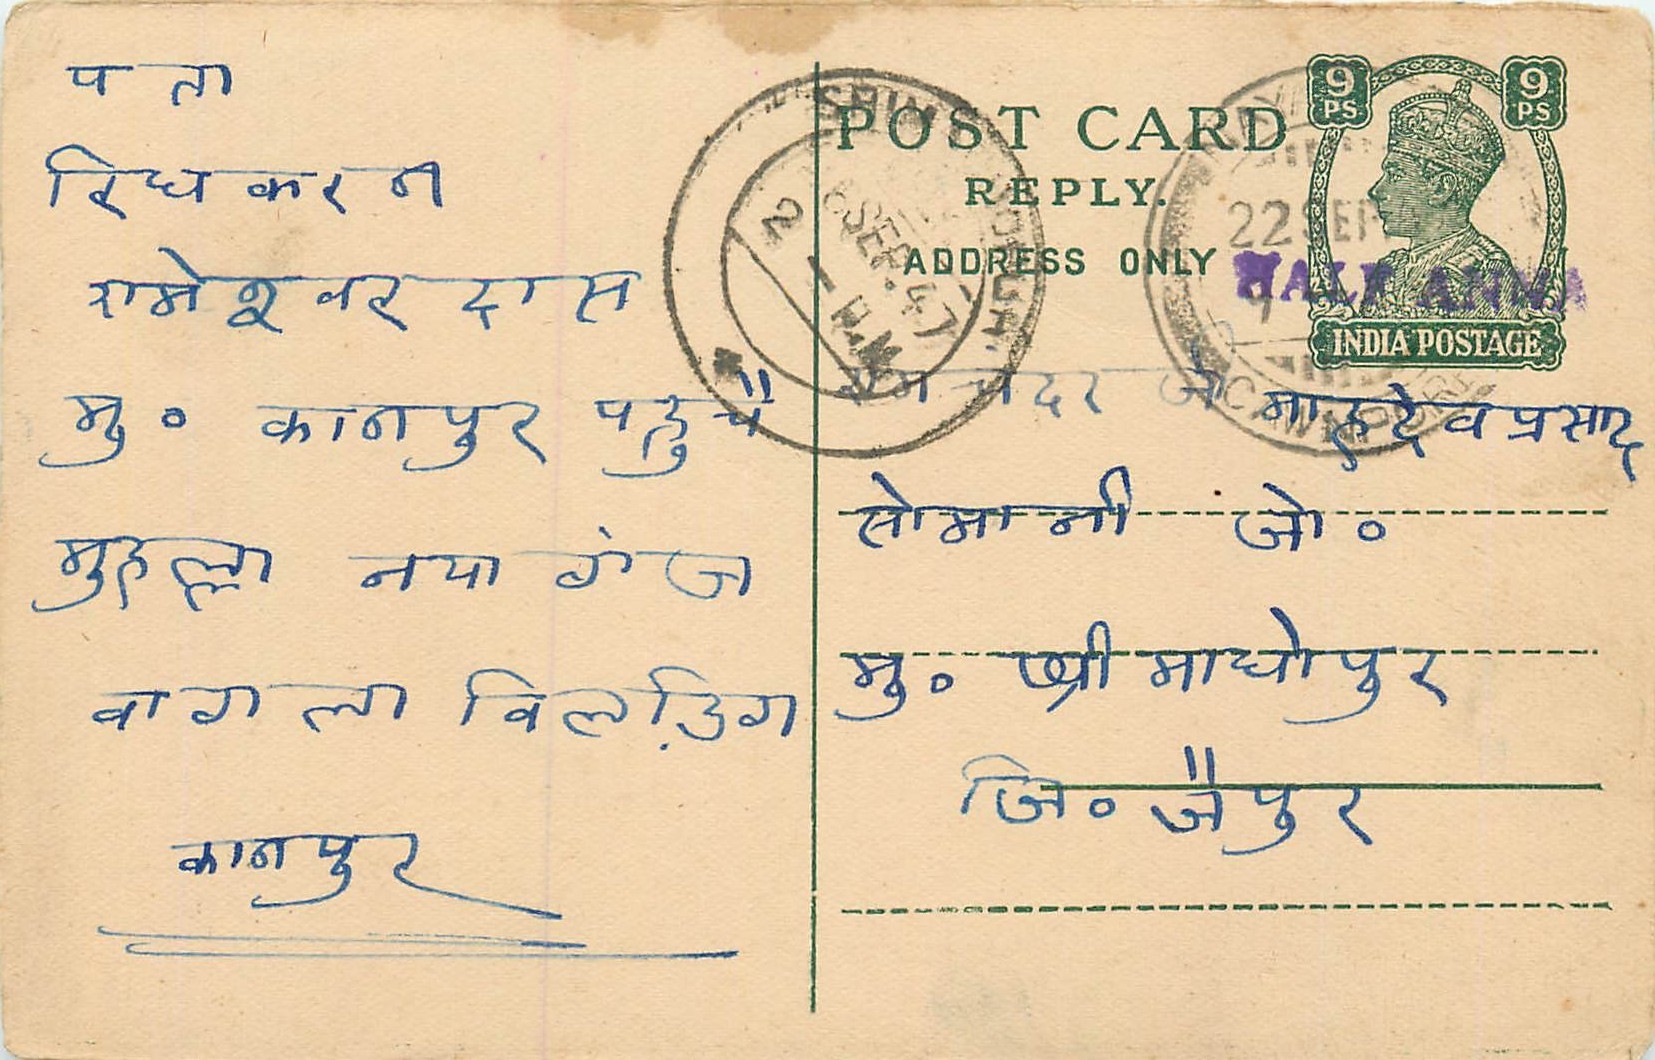 पता
रिघकरन
रामेश्वर दास
मु० कानपुर पहुचै
मुहल्ला नया गंज
वागला विलड़िग
कानपुर
POST CARD
REPLY.
ADDRESS ONLY
9 PS 9 PS
22 SEP
HALF ANNA
INDIA POSTAGE
CAWNPORE
SEP. 47
प्रसाद
सोमानी जी०
मु० श्री माघोपुर
जि० जैपुर